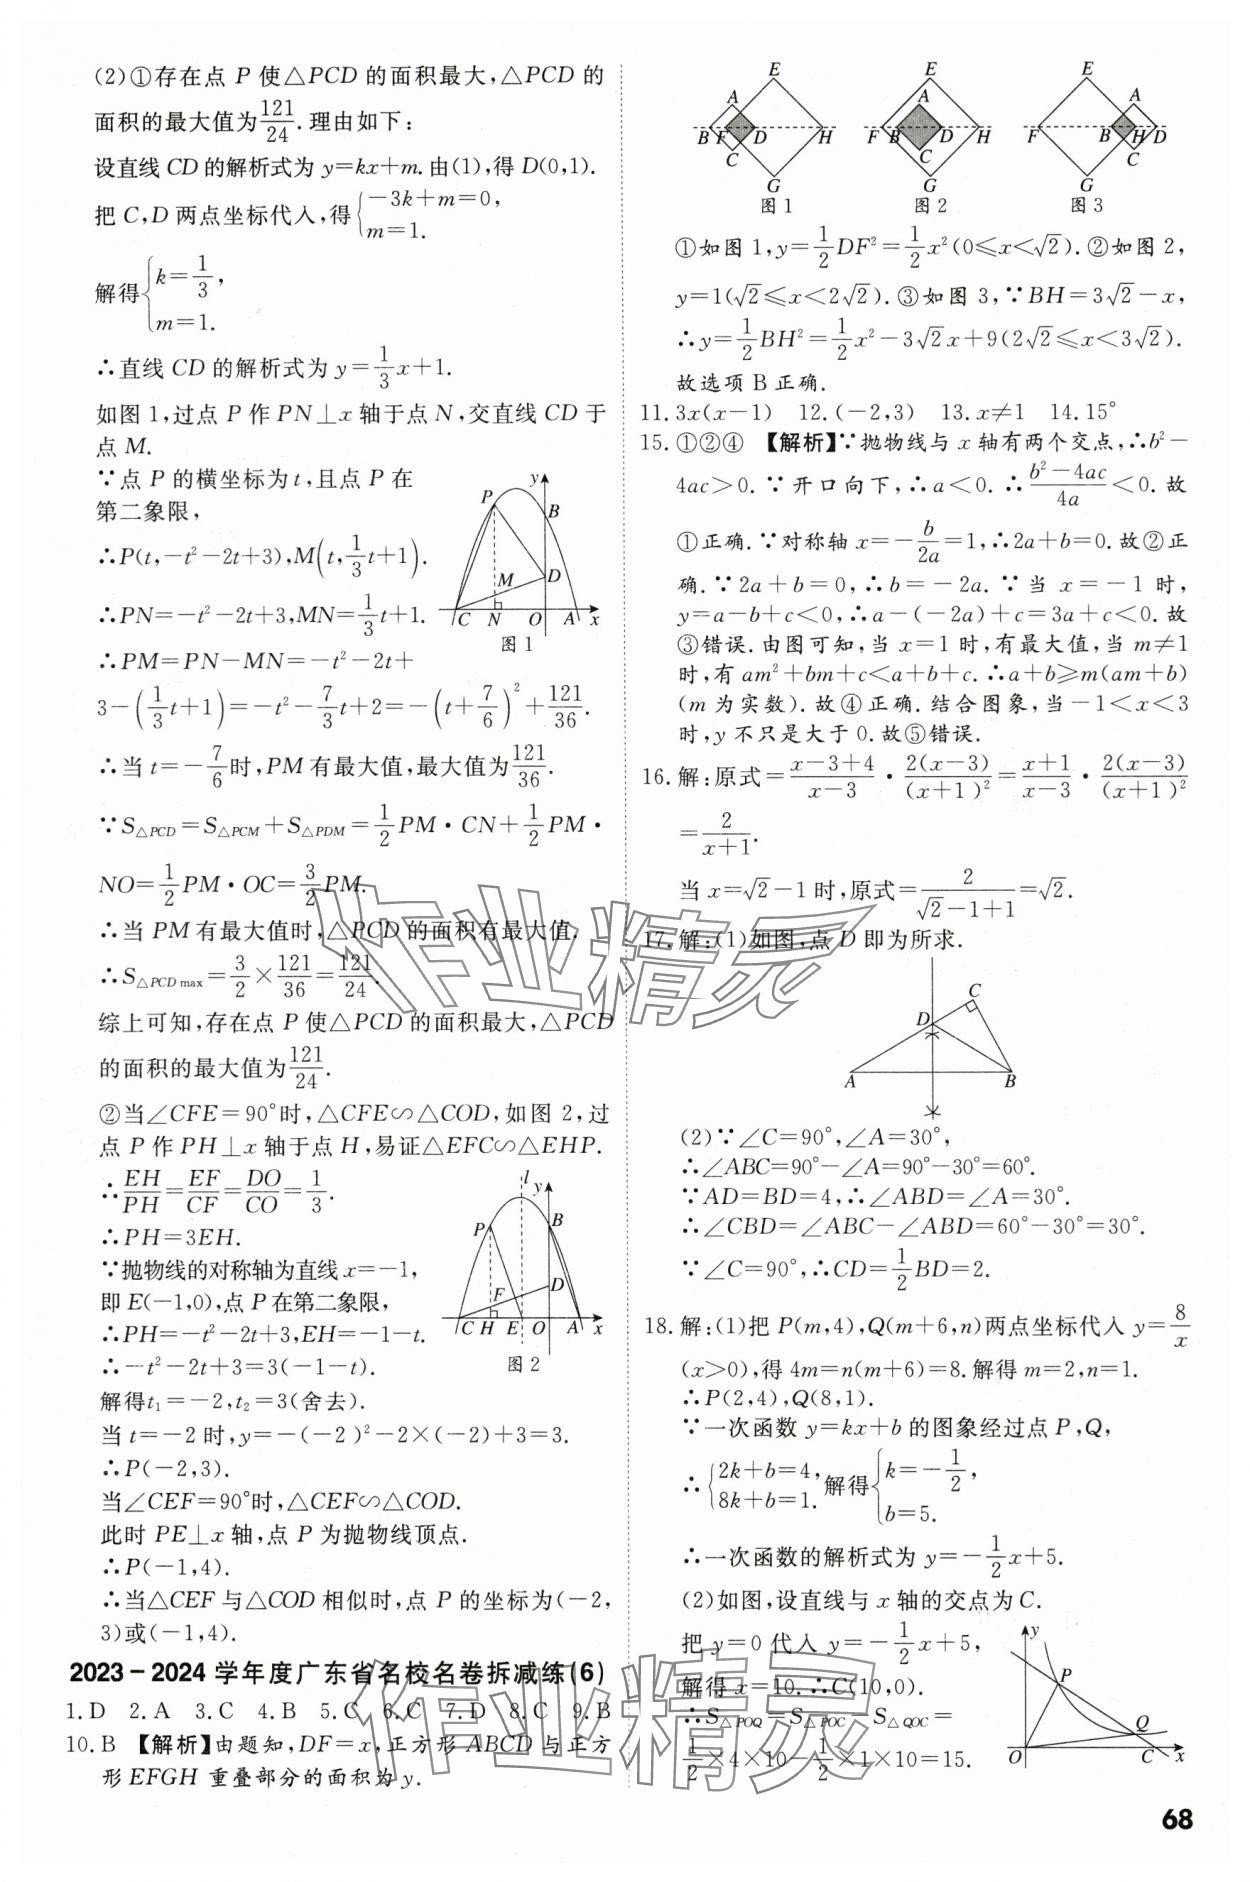 (2)①存在点 P 使△PCD 的面积最大,△PCD 的
面积的最大值为121/24.理由如下:
设直线 CD 的解析式为 y=kx+m.由(1),得 D(0,1).
把 C,D 两点坐标代入,得{-3k+m=0, m=1.
解得{k=1/3, m=1.
∴直线 CD 的解析式为 y=1/3x+1.
如图 1,过点 P 作 PN⊥x 轴于点 N,交直线 CD 于
点 M.
∵点 P 的横坐标为 t,且点 P 在
第二象限,
∴P(t,-t²-2t+3),M(t,1/3t+1).
∴PN=-t²-2t+3,MN=1/3t+1.
∴PM=PN-MN=-t²-2t+
3-(1/3t+1)=-t²-7/3t+2=-(t+7/6)²+121/36.
y
P
B
M
D
C N O A x
图 1
∴当 t=-7/6时,PM 有最大值,最大值为121/36.
∵S△PCD=S△PCM+S△PDM=1/2PM·CN+1/2PM·
NO=1/2PM·OC=3/2PM.
∴当 PM 有最大值时,△PCD 的面积有最大值.
∴S△PCD max=3/2×121/36=121/24.
综上可知,存在点 P 使△PCD 的面积最大,△PCD
的面积的最大值为121/24.
②当∠CFE=90°时,△CFE∽△COD,如图 2,过
点 P 作 PH⊥x 轴于点 H,易证△EFC∽△EHP.
∴EH/PH=EF/CF=DO/CO=1/3.
∴PH=3EH.
∵抛物线的对称轴为直线 x=-1,
即 E(-1,0),点 P 在第二象限,
∴PH=-t²-2t+3,EH=-1-t.
∴-t²-2t+3=3(-1-t).
l
y
P
B
D
F
C H E O A x
图 2
解得t₁=-2,t₂=3(舍去).
当 t=-2 时,y=-(-2)²-2×(-2)+3=3.
∴P(-2,3).
当∠CEF=90°时,△CEF∽△COD.
此时 PE⊥x 轴,点 P 为抛物线顶点.
∴P(-1,4).
∴当△CEF 与△COD 相似时,点 P 的坐标为(-2,
3)或(-1,4).
2023-2024 学年度广东省名校名卷拆减练(6)
1.D 2.A 3.C 4.B 5.C 6.C 7.D 8.C 9.B
10.B 【解析】由题知,DF=x,正方形 ABCD 与正方
形 EFGH 重叠部分的面积为 y.
E
A
B F D H
C
G
图 1
E
A
F B D H
C
G
图 2
E
A
F B H D
C
G
图 3
①如图 1,y=1/2DF²=1/2x²(0≤x<√2).②如图 2,
y=1(√2≤x<2√2).③如图 3,∵BH=3√2-x,
∴y=1/2BH²=1/2x²-3√2x+9(2√2≤x<3√2).
故选项 B 正确.
11.3x(x-1) 12.(-2,3) 13.x≠1 14.15°
15.①②④ 【解析】∵抛物线与 x 轴有两个交点,∴b²-
4ac>0.∵开口向下,∴a<0.∴b²-4ac/4a<0.故
①正确.∵对称轴 x=-b/2a=1,∴2a+b=0.故②正
确.∵2a+b=0,∴b=-2a.∵当 x=-1 时,
y=a-b+c<0,∴a-(-2a)+c=3a+c<0.故
③错误.由图可知,当 x=1 时,有最大值,当 m≠1
时,有 am²+bm+c<a+b+c.∴a+b≥m(am+b)
(m 为实数).故④正确.结合图象,当-1<x<3
时,y 不只是大于 0.故⑤错误.
16.解:原式=x-3+4/x-3·2(x-3)/(x+1)²=x+1/x-3·2(x-3)/(x+1)²
=2/x+1.
当 x=√2-1 时,原式=2/√2-1+1=√2.
17.解:(1)如图,点 D 即为所求.
C
D
A B
(2)∵∠C=90°,∠A=30°,
∴∠ABC=90°-∠A=90°-30°=60°.
∵AD=BD=4,∴∠ABD=∠A=30°.
∴∠CBD=∠ABC-∠ABD=60°-30°=30°.
∵∠C=90°,∴CD=1/2BD=2.
18.解:(1)把 P(m,4),Q(m+6,n)两点坐标代入 y=8/x
(x>0),得 4m=n(m+6)=8.解得 m=2,n=1.
∴P(2,4),Q(8,1).
∵一次函数 y=kx+b 的图象经过点 P,Q,
∴{2k+b=4, 8k+b=1.解得{k=-1/2, b=5.
∴一次函数的解析式为 y=-1/2x+5.
(2)如图,设直线与 x 轴的交点为 C.
把 y=0 代入 y=-1/2x+5,
解得 x=10.∴C(10,0).
∴S△POQ=S△POC-S△QOC=
1/2×4×10-1/2×1×10=15.
y
P
Q
O C x
作业精灵
作业精灵
68